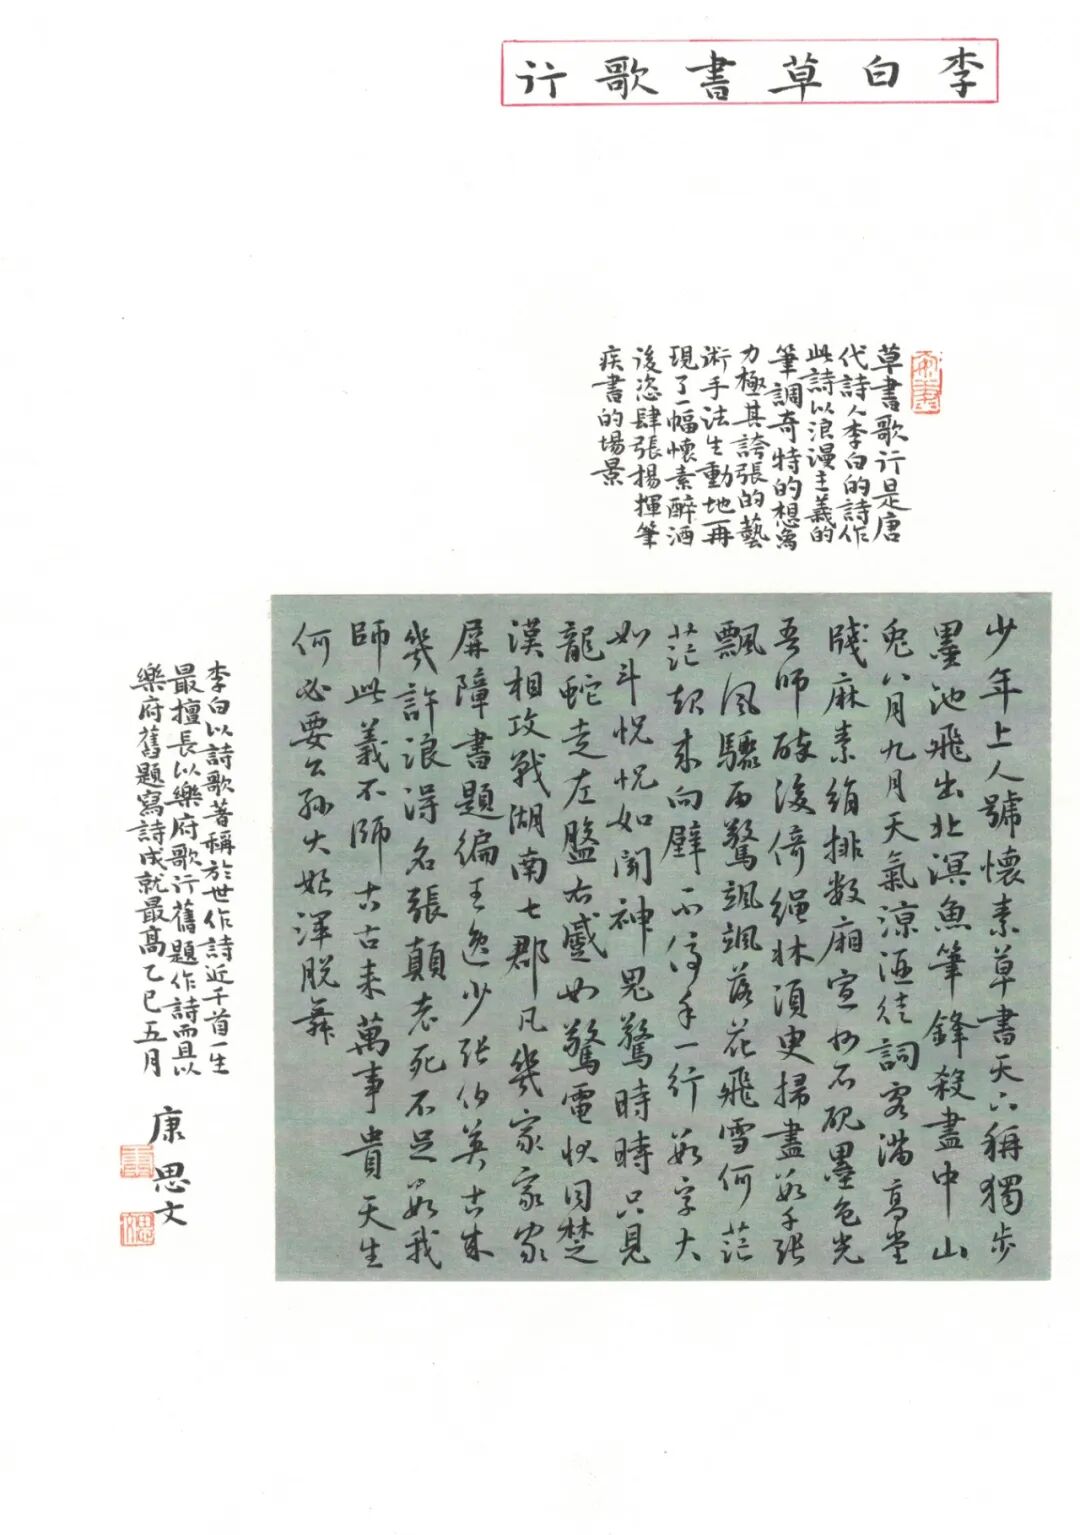 李白草書歌行
草書歌行是唐
代詩人李白的詩作
此詩以浪漫主義的
筆調奇特的想象
力極其誇張的藝
術手法生動地再
現了一幅懷素醉酒
後恣肆張揚揮筆
疾書的場景
少年上人號懷素草書天下稱獨步
墨池飛出北溟魚筆鋒殺盡中山
兔八月九月天氣涼酒徒詞客滿高堂
牋麻素絹排數廂宣州石硯墨色光
吾師醉後倚繩床須臾掃盡數千張
飄風驟雨驚颯颯落花飛雪何茫
茫起來向壁不停手一行數字大
如斗怳怳如聞神鬼驚時時只見
龍蛇走左盤右蹙如驚電狀同楚
漢相攻戰湖南七郡凡幾家家家
屏障書題徧王逸少張伯英古來
幾許浪得名張顛老死不足數我
師此義不師古古來萬事貴天生
何必要公孫大娘渾脫舞
李白以詩歌著稱於世作詩近千首一生
最擅長以樂府歌行舊題作詩而且以
樂府舊題寫詩成就最高乙巳五月
康思文